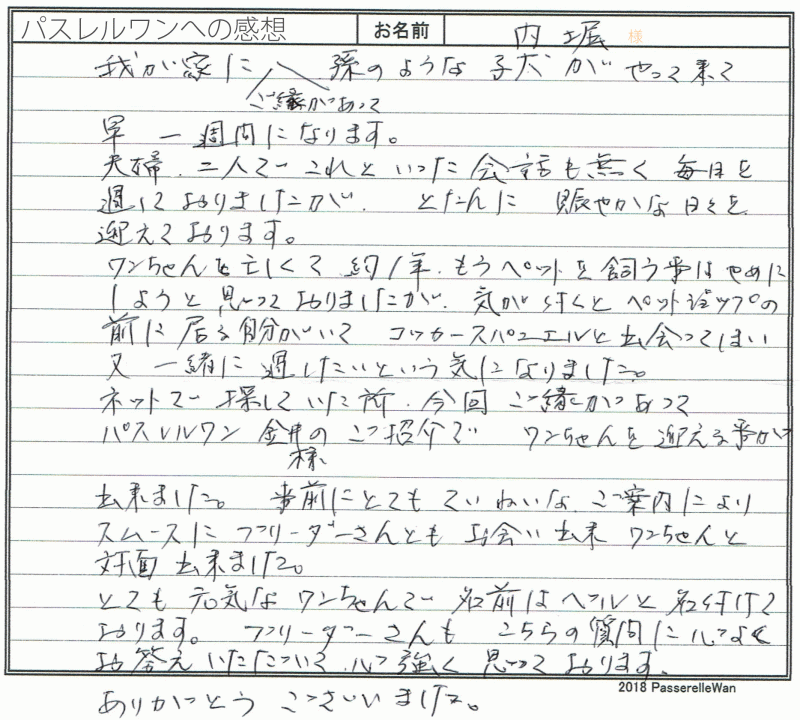 パスレルワンへの感想 お名前 内堀 様
我が家に 孫のような子犬がやって来て
ご縁があって
早一週間になります。
夫婦.二人でこれといった会話も無く毎日を
過してありましたが、とたんに 賑やかな日々を
迎えております。
ワンちゃんを亡くて約1年.もうペットを飼う事はやめに
しようと思っておりましたが.気が付くとペットショップの
前に居る自分がいて コッカースパニエルと出会ってしまい
又 一緒に過したいという気になりました。
ネットで探していた所.今回ご縁があって
パスレルワン 金井の ご紹介で ワンちゃんを迎える事が
様
出来ました。 事前にとてもていねいな.ご案内により
スムースにブリーダーさんともお会い出来 ワンちゃんと
対面出来ました。
とても元気なワンちゃんで 名前はベルと名付けて
おります。 ブリーダーさんも こちらの質問に心よく
お答えいただいて.心強く思っております.
2018 PasserelleWan
ありがとうございました。